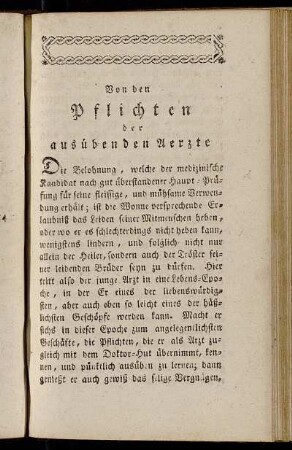 Von den
Pflichten
der
ausübenden Aerzte
Die Belohnung, welche der medizinische
Kandidat nach gut überstandener Haupt-Prü-
fung für seine fleißige, und mühsame Verwen-
dung erhält; ist die Wonne versprechende Er-
laubniß das Leiden seiner Mitmenschen heben,
oder wo er es schlechterdings nicht heben kann,
wenigstens lindern, und folglich nicht nur
allein der Heiler, sondern auch der Tröster sei-
ner leidenden Brüder seyn zu dürfen. Hier
tritt also der junge Arzt in eine Lebens-Epo-
che, in der Er eines der liebenswürdig-
sten, aber auch oben so leicht eines der häß-
lichsten Geschöpfe werden kann. Macht er
sichs in dieser Epoche zum angelegentlichsten
Geschäfte, die Pflichten, die er als Arzt zu-
gleich mit dem Doktor-Hut übernimmt, ken-
nen, und pünktlich ausüben zu lernen; dann
genießt er auch gewiß das selige Vergnügen,